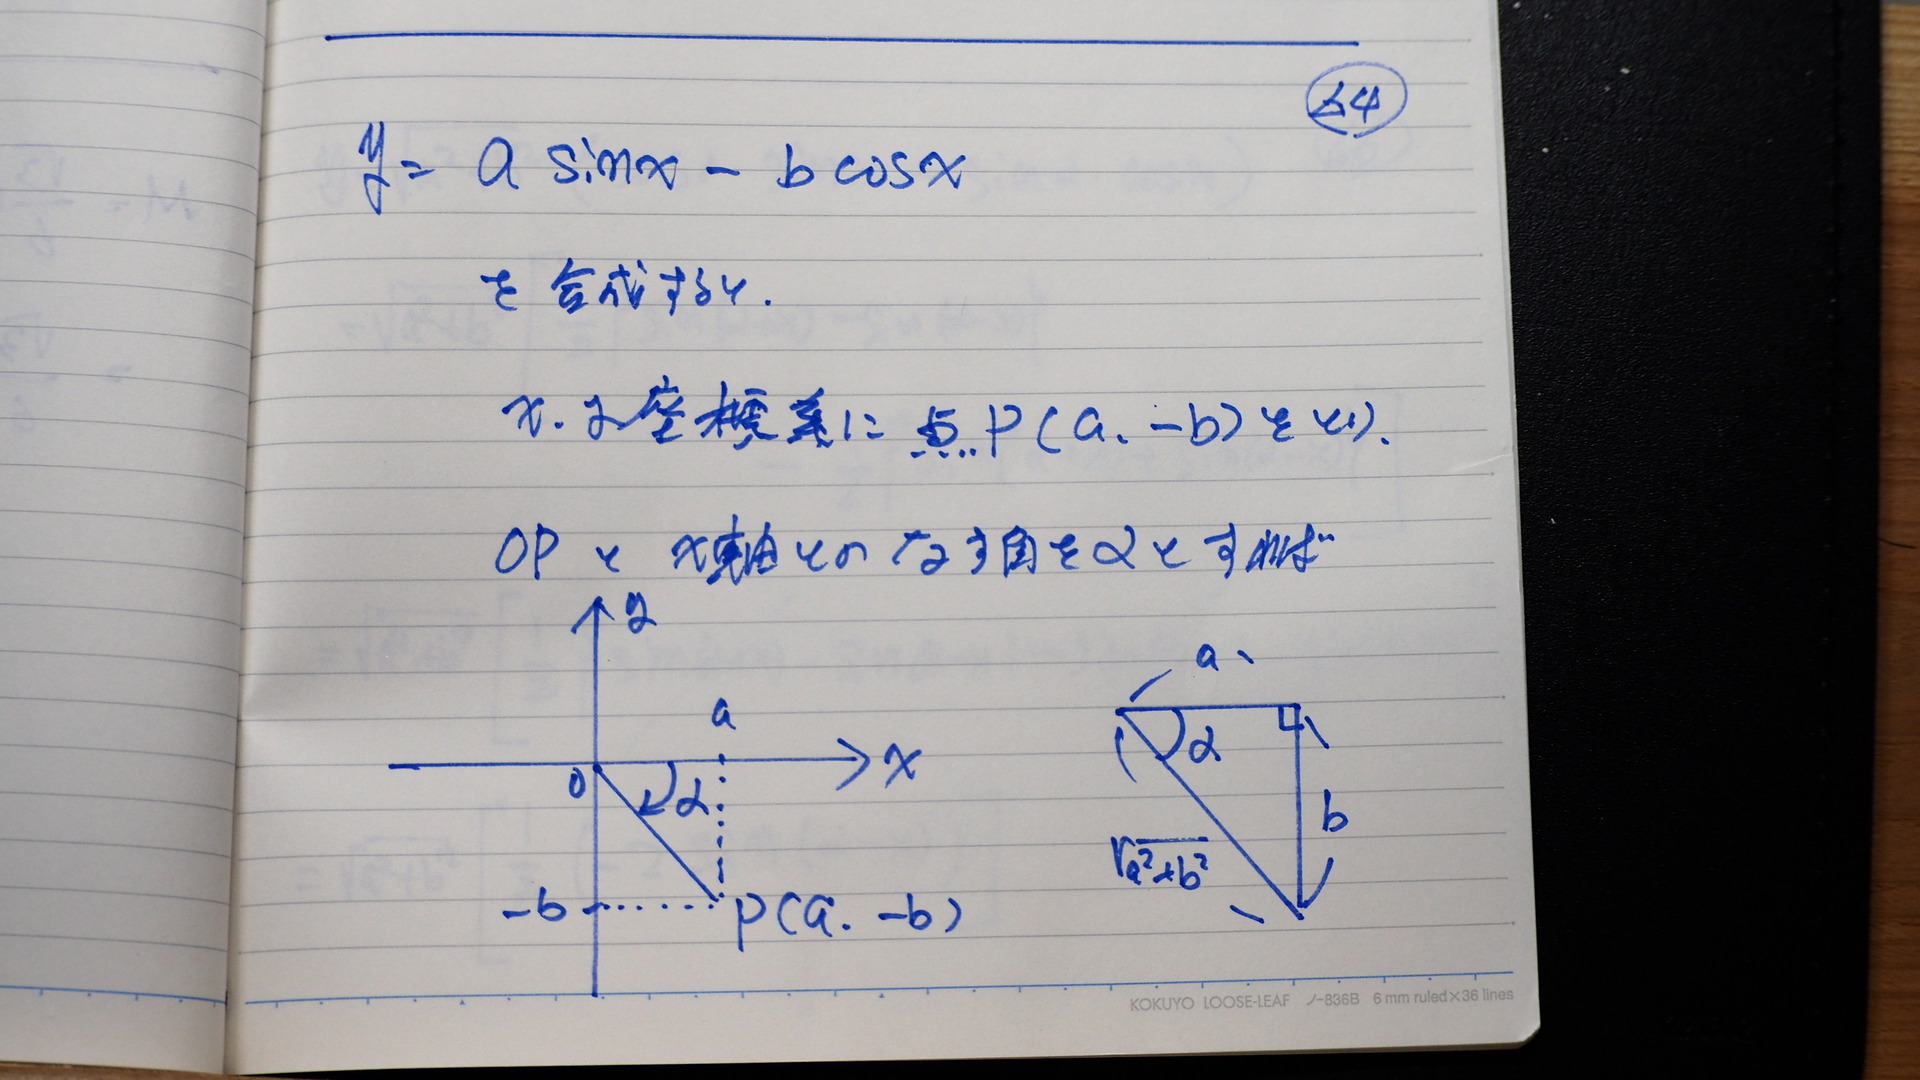 64
y = a sinx - b cosx
を合成すると.
x.y座標系に点P(a. -b)をとり.
OPとx軸とのなす角をαとすれば
y
a
a
x
0
α
α
b
√a²+b²
-b
P(a. -b)
KOKUYO LOOSE-LEAF ノ-836B 6 mm ruled×36 lines